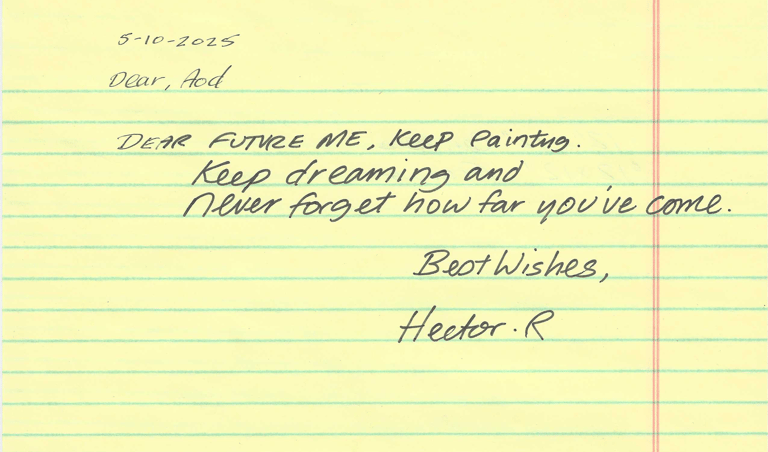 5-10-2025
Dear, Aod
DEAR FUTURE ME, Keep Painting.
Keep dreaming and
never forget how far you've come.
Best Wishes,
Hector. R